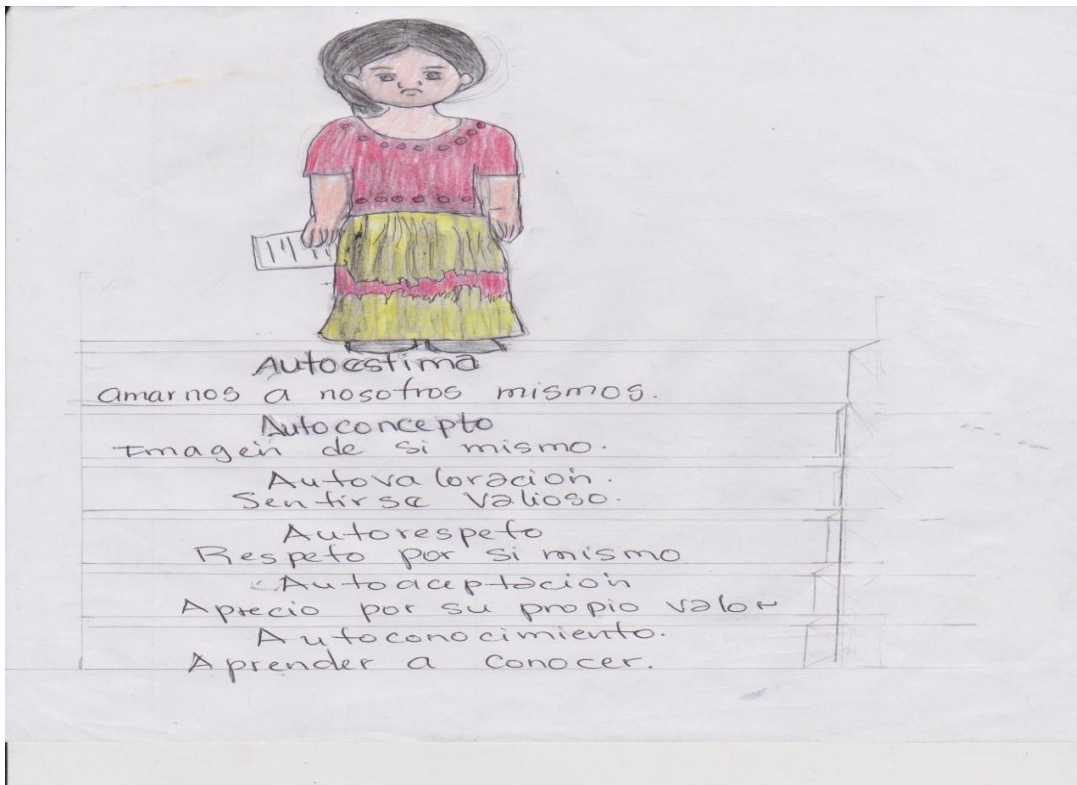 Autoestima
amarnos a nosotros mismos.
Autoconcepto
Imagen de si mismo.
Autovaloración.
Sentirse valioso.
Autorespeto
Respeto por si mismo
Autoaceptación
Aprecio por su propio valor
Autoconocimiento.
Aprender a conocer.